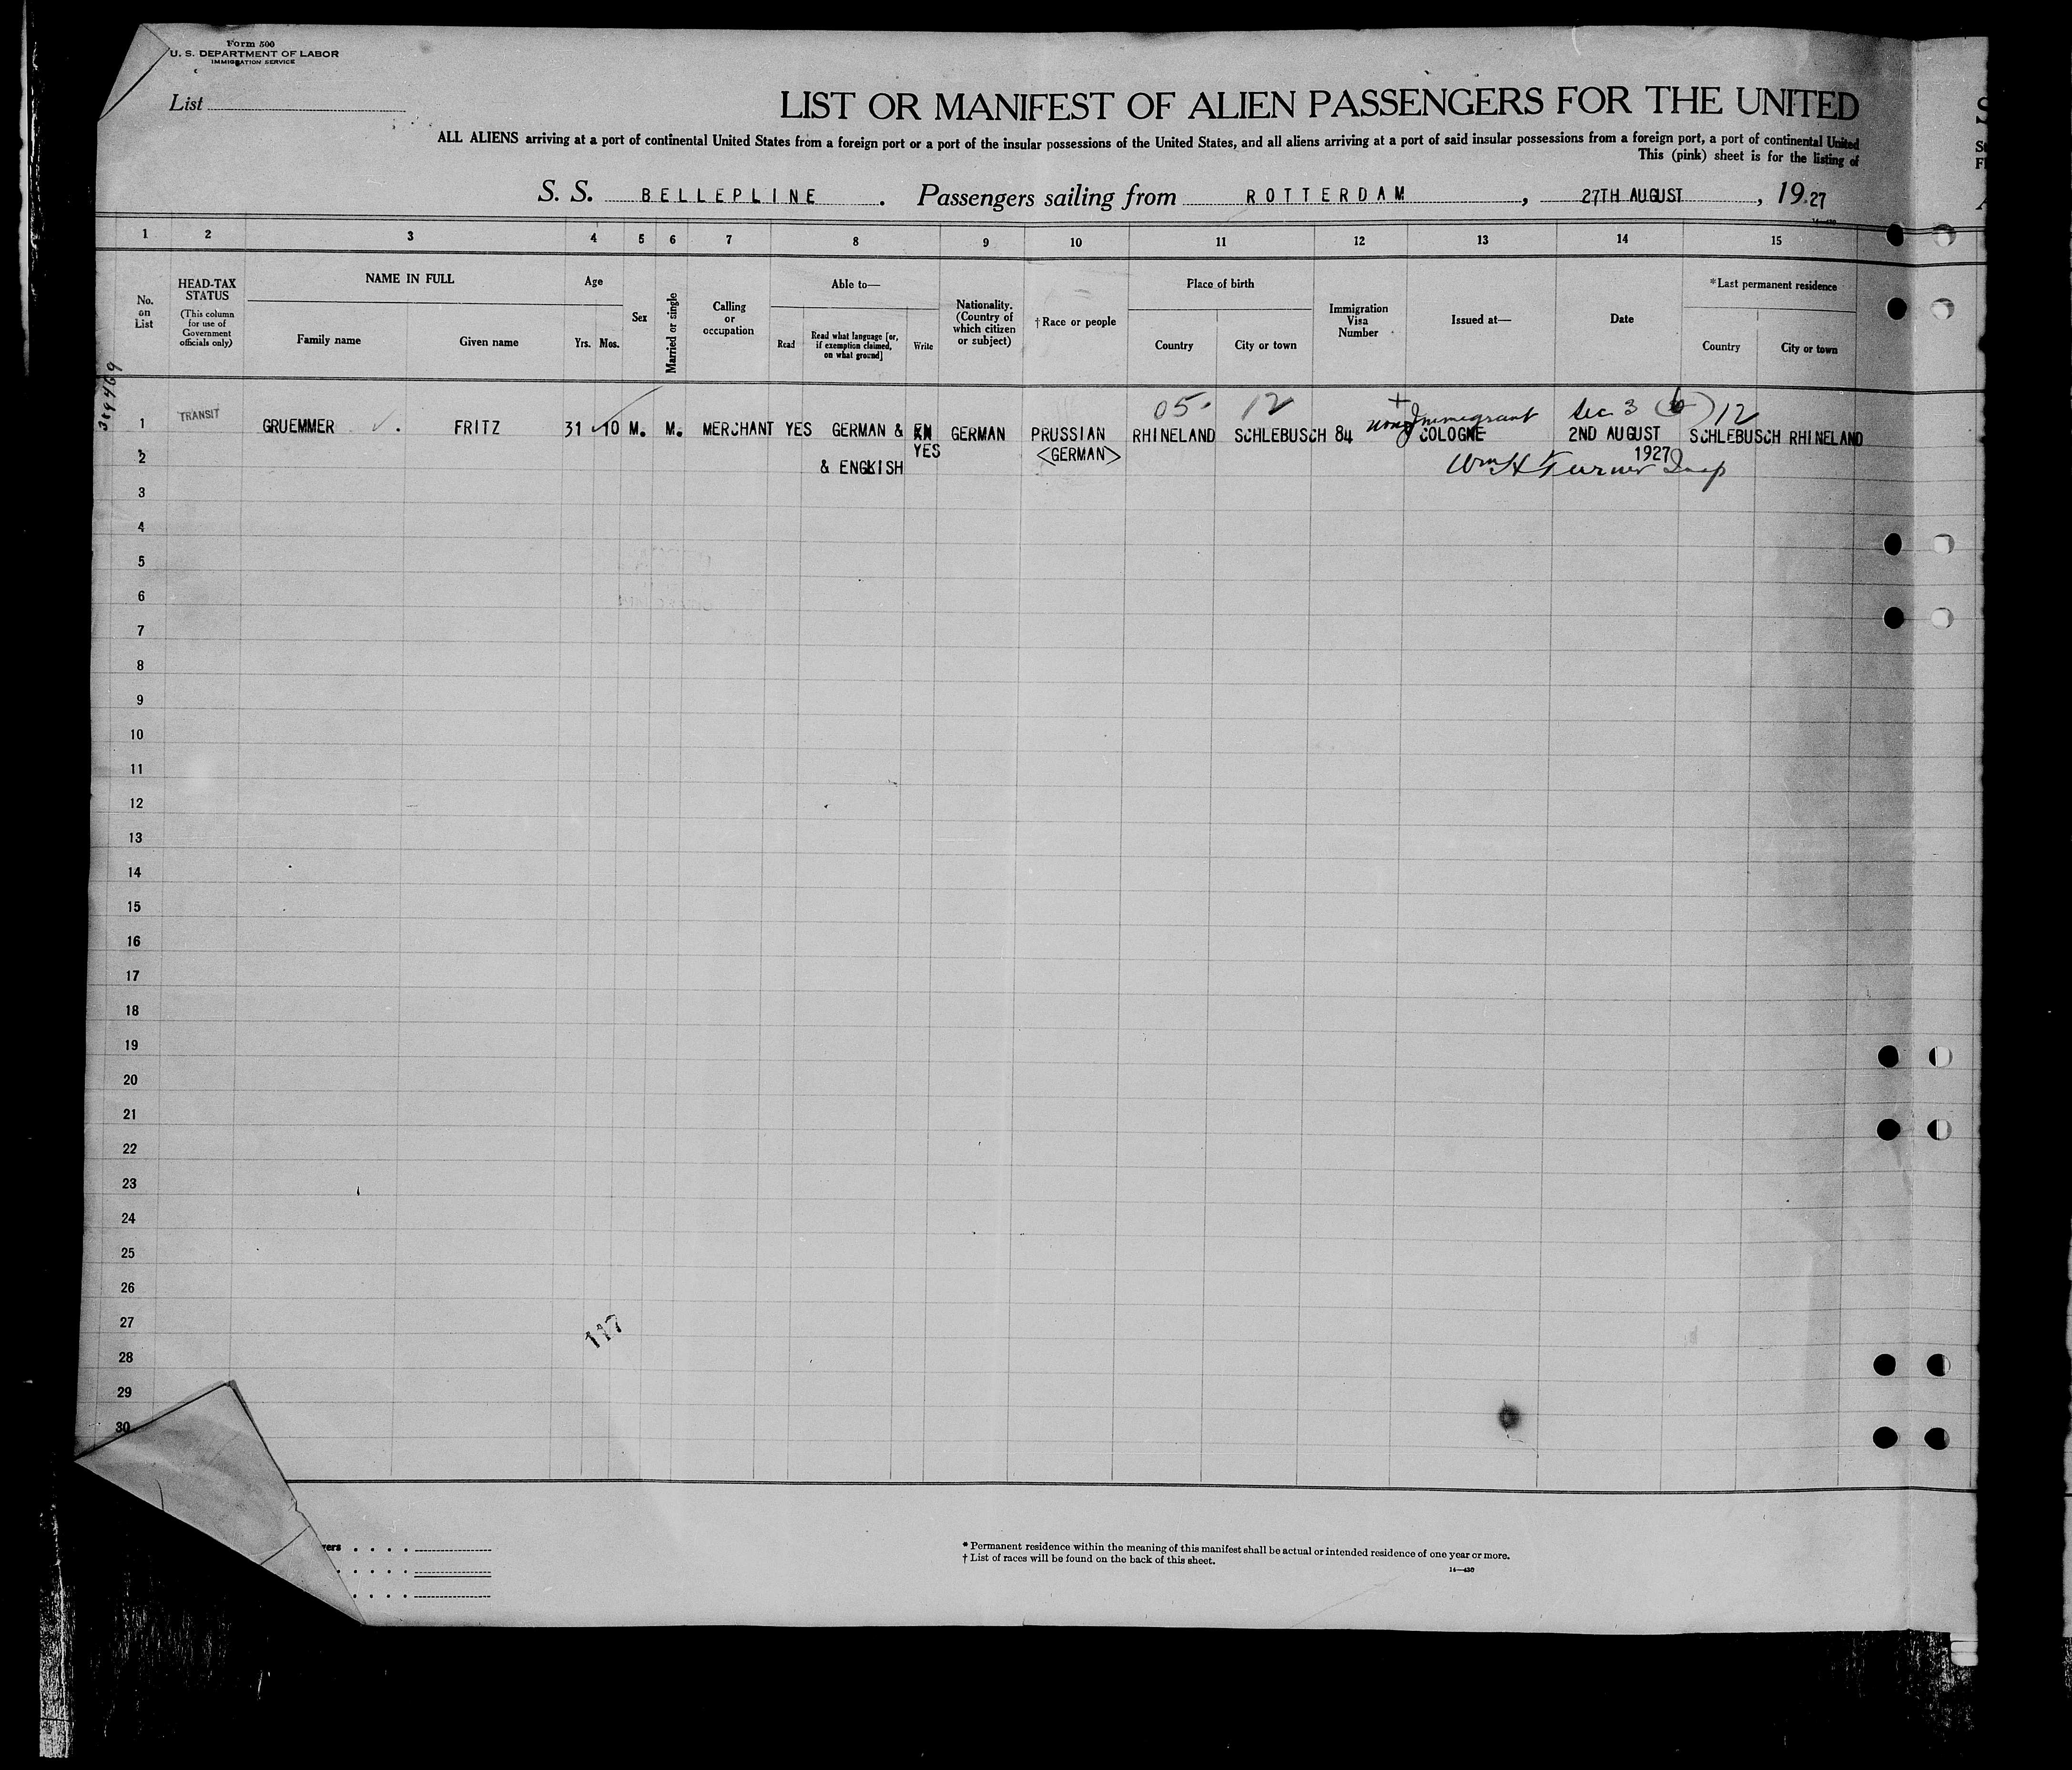 Form 500
U. S. DEPARTMENT OF LABOR
IMMIGRATION SERVICE
List
LIST OR MANIFEST OF ALIEN PASSENGERS FOR THE UNITED
ALL ALIENS arriving at a port of continental United States from a foreign port or a port of the insular possessions of the United States, and all aliens arriving at a port of said insular possessions from a foreign port, a port of continental United
This (pink) sheet is for the listing of
S. S. BELLEPLINE . Passengers sailing from ROTTERDAM , 27TH AUGUST , 19 27
1 2 3 4 5 6 7 8 9 10 11 12 13 14 15
No. on List
HEAD-TAX STATUS
(This column for use of Government officials only)
NAME IN FULL
Family name Given name
Age
Yrs. Mos.
Sex
Married or single
Calling or occupation
Able to—
Read
Read what language [or, if exemption claimed, on what ground]
Write
Nationality. (Country of which citizen or subject)
†Race or people
Place of birth
Country City or town
Immigration Visa Number
Issued at—
Date
*Last permanent residence
Country City or town
389469
05. 12 non Immigrant Sec 3 (6) 12
1 TRANSIT GRUEMMER . FRITZ 31 10 M. M. MERCHANT YES GERMAN & EN GERMAN PRUSSIAN RHINELAND SCHLEBUSCH 84 COLOGNE 2ND AUGUST SCHLEBUSCH RHINELAND
YES <GERMAN> 1927
2 & ENGKISH Wm H Turner Insp
3
4
5
6
7
8
9
10
11
12
13
14
15
16
17
18
19
20
21
22
23
24
25
26
27
117
28
29
30
* Permanent residence within the meaning of this manifest shall be actual or intended residence of one year or more.
† List of races will be found on the back of this sheet.
14—430